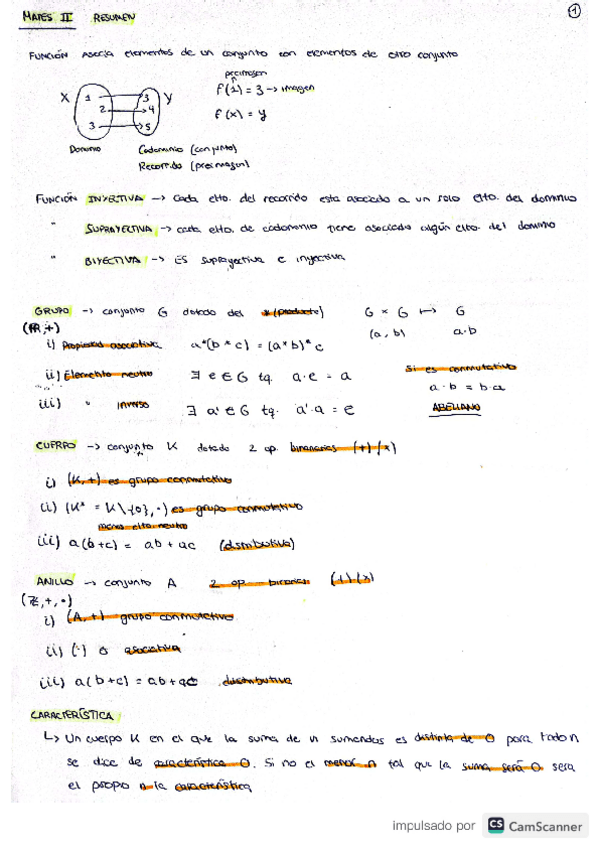 MATES II RESUMEN
1
FUNCIÓN asocia elementos de un conjunto con elementos de otro conjunto
preimagen
X 1 2 3 3 4 5 Y
f(1) = 3 → imagen
f(x) = y
Dominio
Codominio (conjunto)
Recorrido (preimagen)
FUNCIÓN INYECTIVA → cada elto. del recorrido esta asociado a un solo elto. del dominio
" SUPRAYECTIVA → cada elto. de codominio tiene asociado algún elto. del dominio
" BIYECTIVA → Es suprayectiva e inyectiva
GRUPO → conjunto G dotado del *(producto) G × G ↦ G
(ℝ,+) (a, b) a·b
i) Propiedad asociativa a*(b*c) = (a*b)*c
ii) Elemento neutro ∃ e ∈ G tq. a·e = a
Si es conmutativo
a·b = b·a
iii) " inverso ∃ a' ∈ G tq. a'·a = e
ABELIANO
CUERPO → conjunto K dotado 2 op. binarias (+)(x)
i) (K,+) es grupo conmutativo
ii) (K* = K\{0}, ·) es grupo conmutativo
menos elto neutro
iii) a(b+c) = ab + ac (distributiva)
ANILLO → conjunto A 2 op binarias (+)(x)
(ℤ,+,·)
i) (A,+) grupo conmutativo
ii) (·) asociativa
iii) a(b+c) = ab+ac distributiva
CARACTERÍSTICA
↳ Un cuerpo K en el que la suma de n sumandos es distinta de 0 para todo n
se dice de característica 0. Si no el menor n tal que la suma será 0 sera
el propio n la característica
impulsado por CS CamScanner